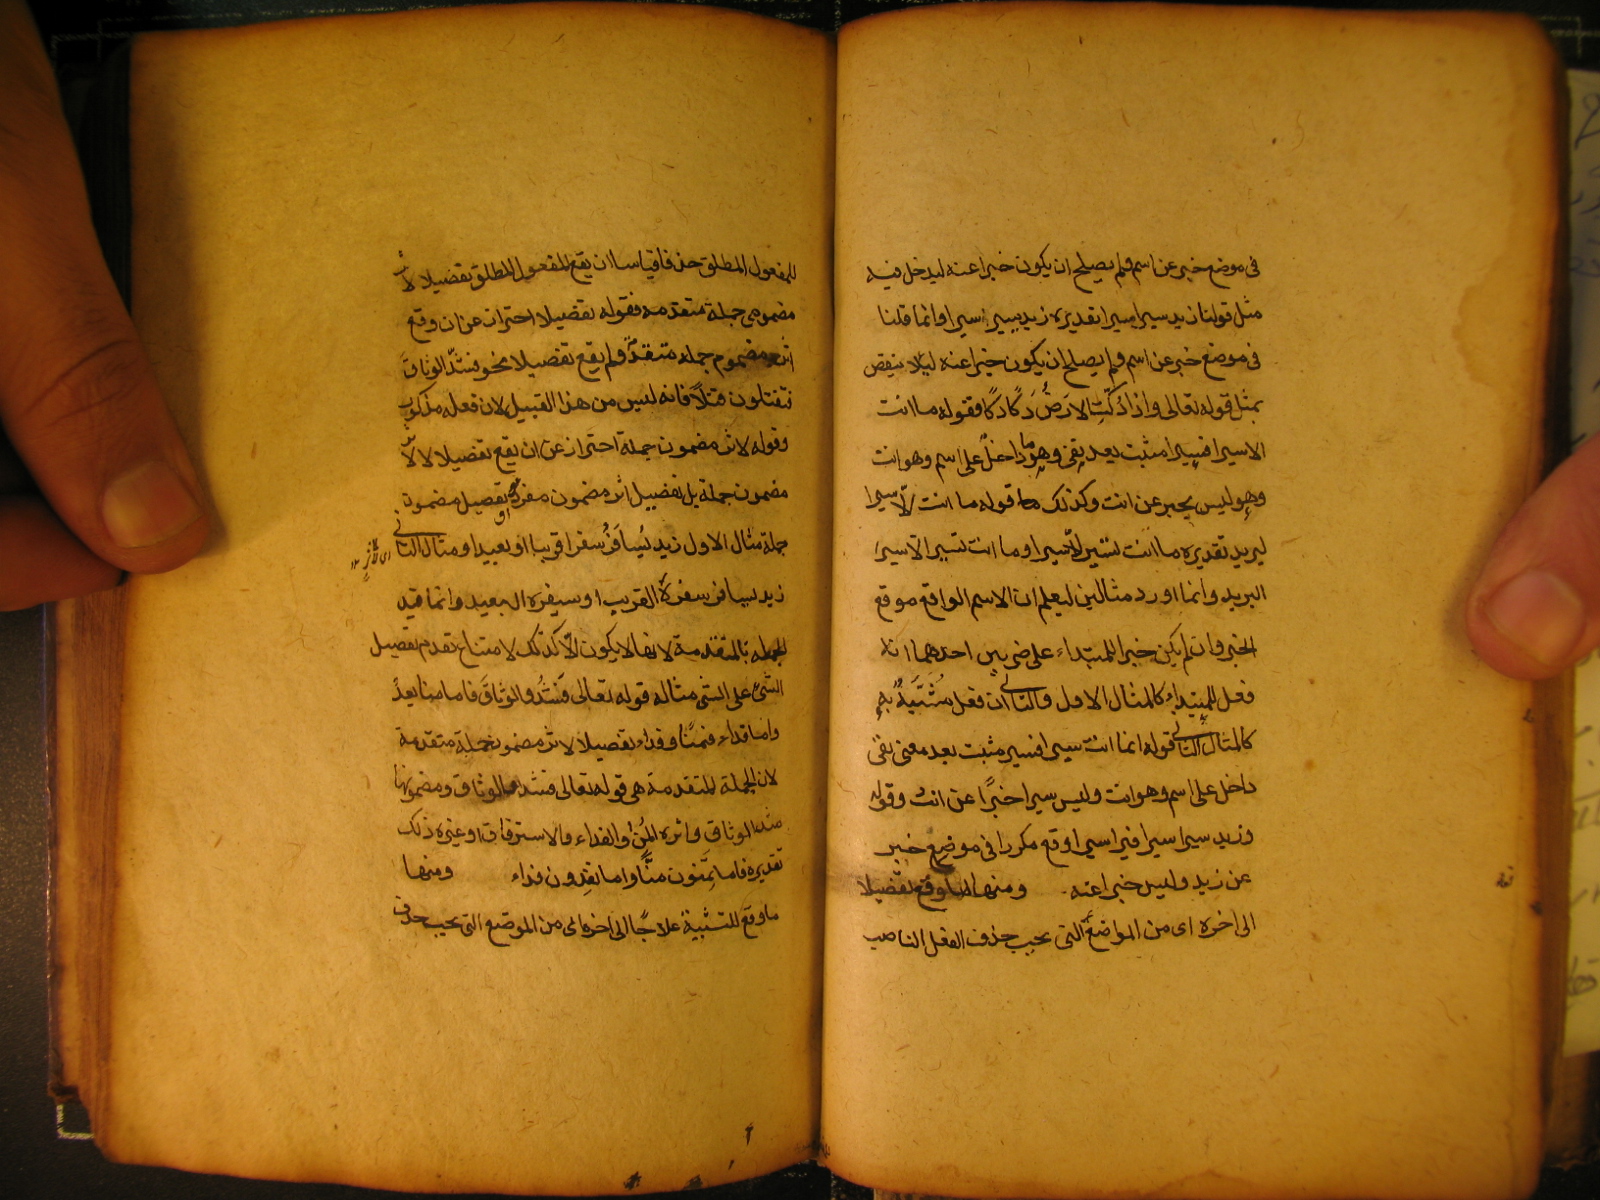 فى موضع خبر عن اسم ولم يصلح ان يكون خبرا عنه ليدخل فيه
مثل قولنا زيد سيرا سيرا تقديره زيد يسير سيرا وانما قلنا
فى موضع خبر عن اسم ولم يصلح ان يكون خبرا عنه ليلا ينقض
بمثل قوله تعالى واذا دُكّتِ الارَضُ دَكًّا دَكًّا فقوله ما انت
الا سيرا فسيرا مثبت بعد نفى وهو داخلٌ على اسم وهو انت
وهو ليس بخبر عن انت وكذلك قوله ما انت الّا سيرا
لبريد تقديره ما انت تسير الّا سيرا وما انت تسير الا سيرا
البريد وانما اورد مثالين ليعلم ان الاسم الواقع موقع
الخبر وان لم يكن خبرا للمبتداء على ضربين احدهما انه
فعل للمبتداء كالمثال الاول والثانى ان فعل مُشَبَّهٌ به
كالمثال الثانى قوله انما انت سيرا فسيرا مثبت بعد معنى نفى
داخل على اسم وهو انت وليس سيرا خبرًا عن انت وقوله
وزيد سيرا سيرا فسيرا سيرا وقع مكررا فى موضع خبر
عن زيد وليس خبرا عنه ومنها ما وقع تفصيلا
الى اخره اى من المواضع التى يجب حذف الفعل الناصب
للمفعول المطلق حذفا قياسا ان يقع المفعول المطلق تفصيلا لاثر
مضمون جملة متقدمة فقوله تفصيلا احتراز عن ان وقع
اثر مضموم جملة متقدمة ولم يقع تفصيلا نحو فشدّ الوثاق
فتقتلون قتلاً فانه ليس من هذا القبيل لان فعله مذكور
وقوله لاثر مضمون جملة احتراز عن ان يقع تفصيلا لا لاثر
مضمون جملة بل تفصيل اثر مضمون مفرد او تفصيل مضمون
جملة مثال الاول زيد يُسافَرُ سفرا قريبا او بعيدا ومثال الثانى
زيد يسافر سفرة القريب او سفره البعيد وانما قيد
الجملة بالمتقدمة لانها لا يكون الّا كذلك لامتناع تقدم تفصيل
الشىء على الشى مثاله قوله تعالى فَشُدُّوا الوثاقَ فاما منا بعدُ
واما فداء فمنًّا وفداء تفصيلا لاثر مضمون جملة متقدمة
لان الجملة المتقدمة هى قوله تعالى فشدوا الوثاق ومضمونها
شد الوثاق واثره المَنُّ والفداء والاسترقاق وغيره ذلك
تقديره فاما تَمنّون منًّا واما تفدون فداء ومنها
ما وقع للتشبيهُ علاجًا الى اخره اى من الموضع التى يجب حذف